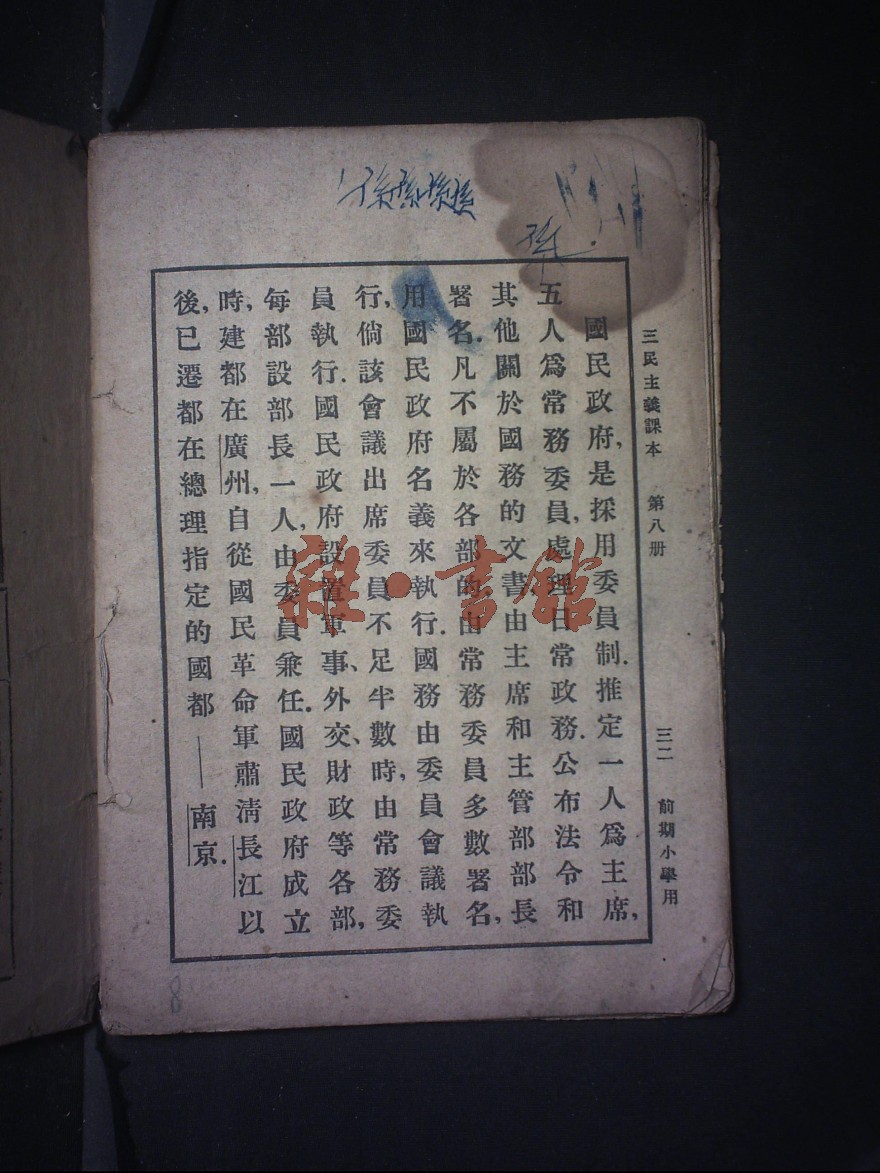 三民主義課本 第八册 三二 前期小學用
國民政府,是採用委員制.推定一人爲主席,
五人爲常務委員,處理日常政務.公布法令和
其他關於國務的文書由主席和主管部部長
署名.凡不屬於各部的,由常務委員多數署名,
用國民政府名義來執行.國務由委員會議執
行,倘該會議出席委員不足半數時,由常務委
員執行.國民政府設置軍事、外交、財政等各部,
每部設部長一人,由委員兼任.國民政府成立
時,建都在廣州,自從國民革命軍肅淸長江以
後,已遷都在總理指定的國都——南京.
雜·書館
8